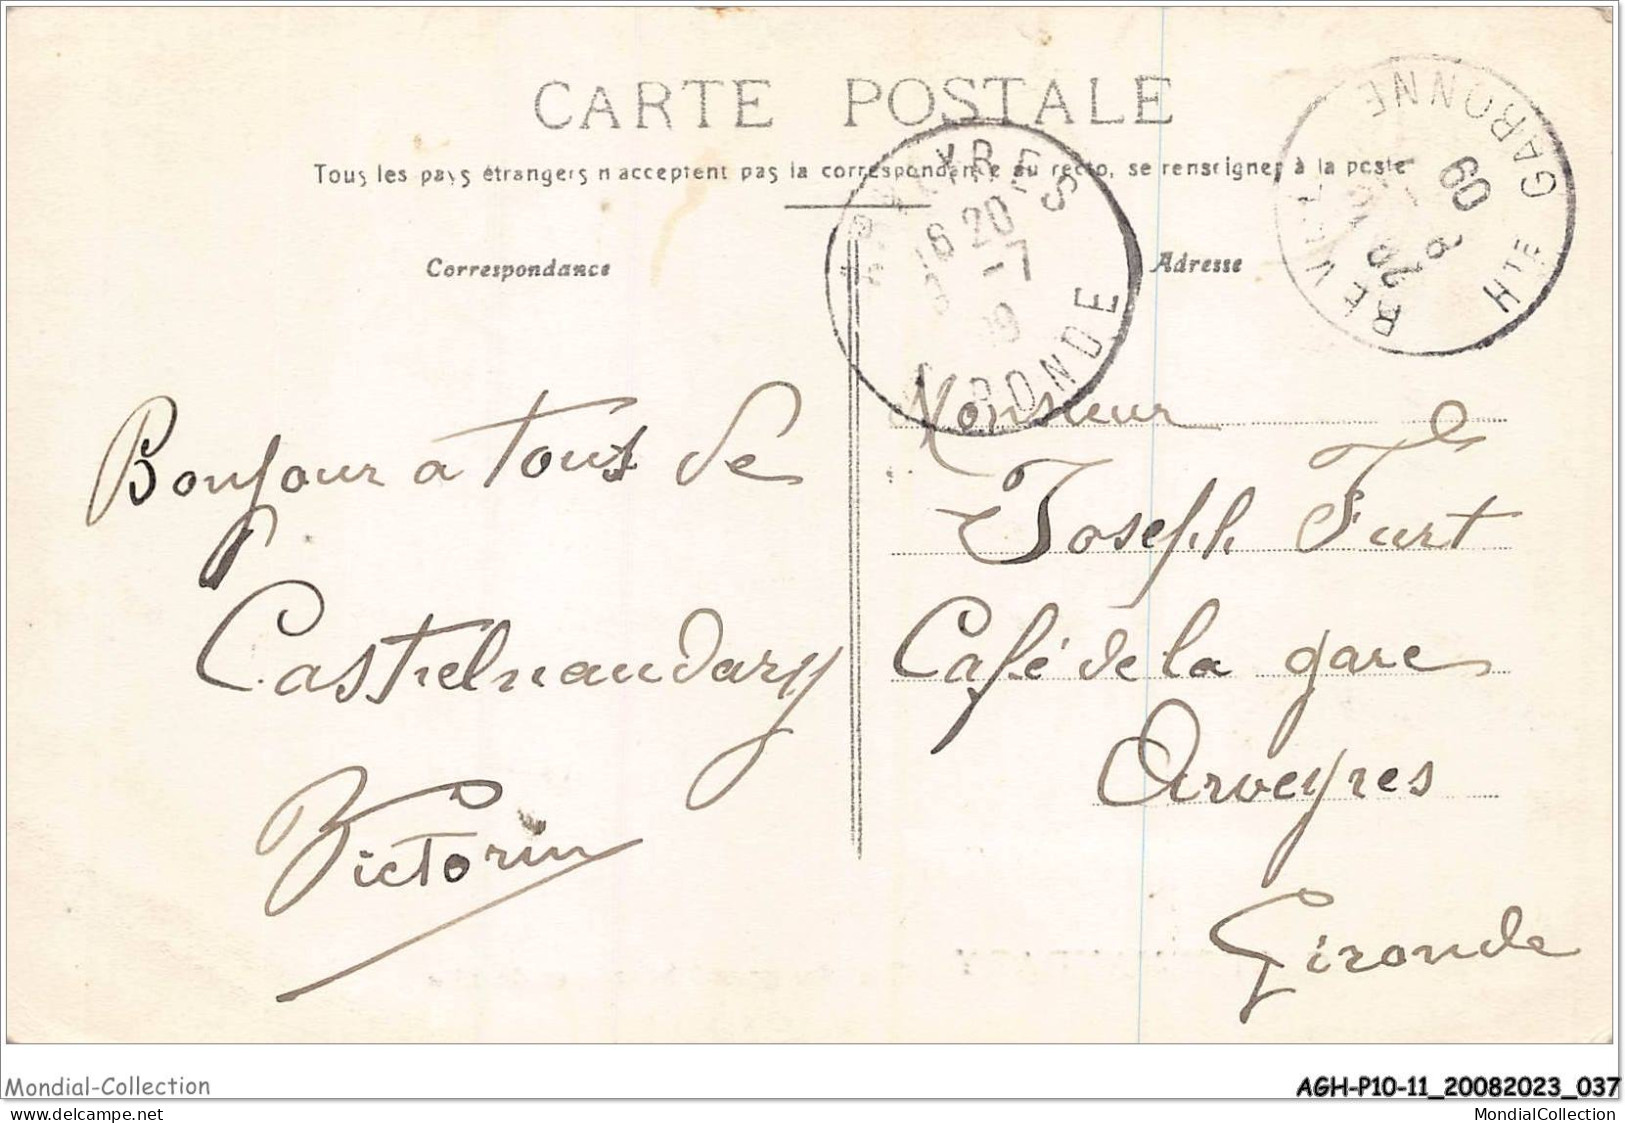 CARTE POSTALE
Tous les pays étrangers n'acceptent pas la correspondance au recto, se renseigner à la poste
Correspondance
Adresse
ARVEYRES
18 20
-7
09
GIRONDE
REVEL
HTE GARONNE
8
09
Bonjour a tous de
Castelnaudary
Victorin
Monsieur
Joseph Furt
Café de la gare
Arveyres
Gironde
Mondial-Collection
AGH-P10-11_20082023_037
www.delcampe.net
MondialCollection